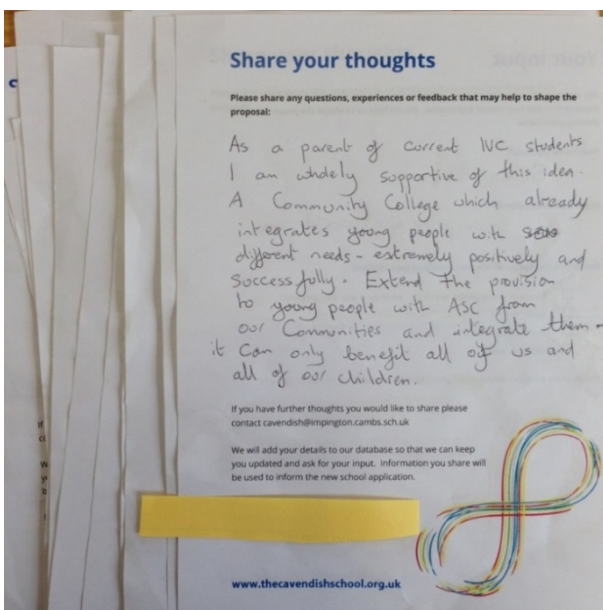 Share your thoughts
Please share any questions, experiences or feedback that may help to shape the
proposal:
As a parent of current IVC students
I am whdely supportive of this idea.
A Community College which already
integrates young people with
different needs - extremely positively and
successfully. Extend the provision
to young people with ASC from
our Communities and integrate them -
it can only benefit all of us and
all of our children.
If you have further thoughts you would like to share please
contact cavendish@impington.cambs.sch.uk
We will add your details to our database so that we can keep
you updated and ask for your input. Information you share will
be used to inform the new school application.
www.thecavendishschool.org.uk